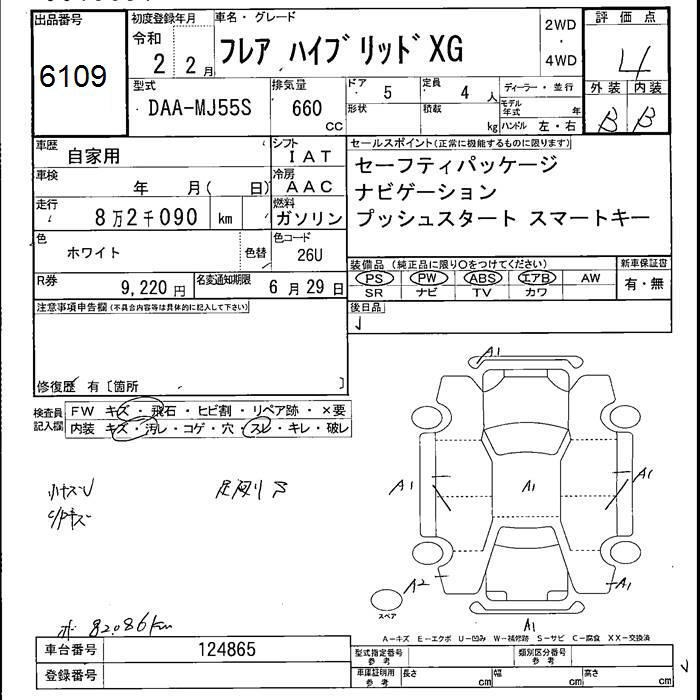 出品番号
6109
初度登録年月
令和
2 2月
車名・グレード
フレア ハイブリッドXG
2WD
・
4WD
評価点
4
外装 内装
B B
型式
DAA-MJ55S
排気量
660
cc
ドア
5
定員
4 人
形状
積載
kg
ディーラー・並行
モデル年式 年
ハンドル 左・右
車歴
自家用
シフト
IAT
車検
年 月( 日)
冷房
AAC
走行
8万2千090 km
燃料
ガソリン
色
ホワイト
色替
色コード
26U
R券
9,220円
名変通知期限
6月29日
セールスポイント(正常に機能するものに限ります)
セーフティパッケージ
ナビゲーション
プッシュスタート スマートキー
装備品(純正品に限り○をつけてください)
PS PW ABS エアB AW
SR ナビ TV カワ
新車保証書
有・無
後日品
注意事項申告欄(不具合内容等は具体的に記入して下さい)
修復歴 有〔箇所 〕
検査員記入欄
FW キズ・飛石・ヒビ割・リペア跡・×要
内装 キズ・汚レ・コゲ・穴・スレ・キレ・破レ
A1
A1
A1
A1
A2
A1
A1
スペア
82086km
A-キズ E-エクボ U-凹み W-補修跡 S-サビ C-腐食 XX-交換済
車台番号
124865
登録番号
型式指定番号
参考
類別区分番号
参考
車庫証明用
参考
長さ cm
幅 cm
高さ cm